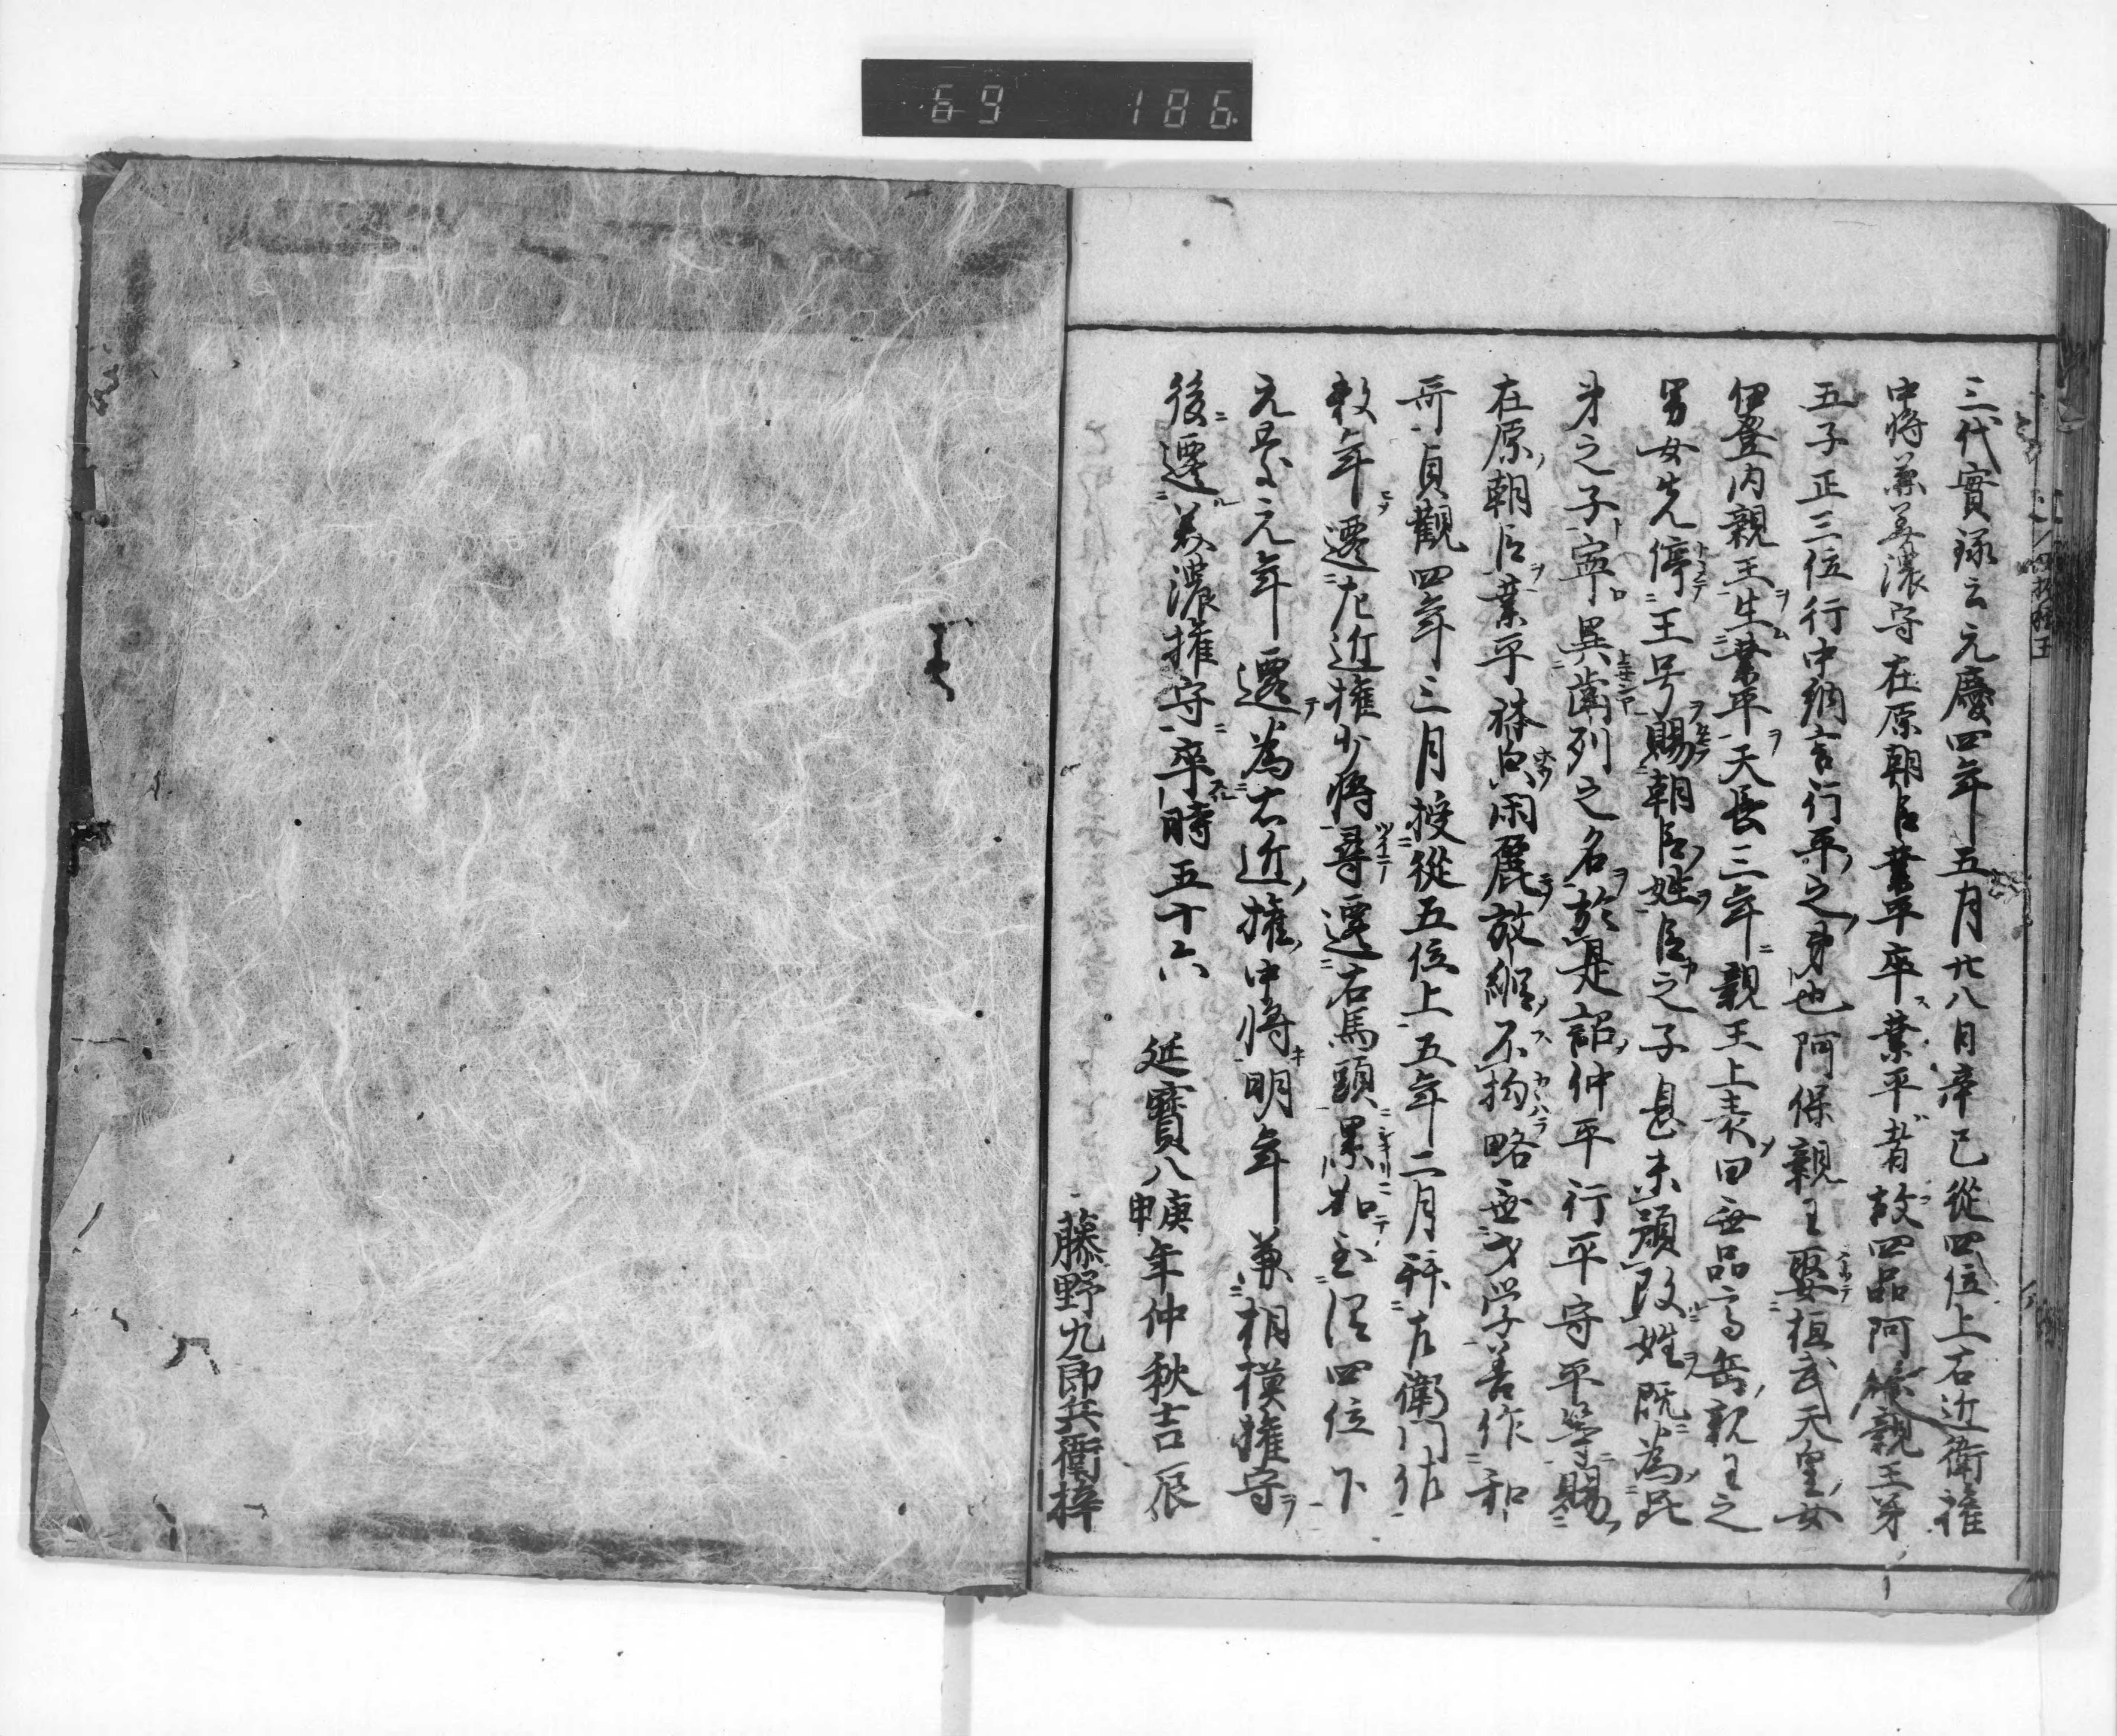 69 186
三代實録云元慶四年五月廿八日辛巳從四位上右近衛権
中将兼美濃守在原朝臣業平卒ス業平者故四品阿保親王第
五子正三位行中納言行平之弟也阿保親王娶桓武天皇女
伊登内親王生業平天長三年親王上表曰無品高岳親王之
男女先停王号賜朝臣姓臣之子息未預改姓既為昆
弟之子寧異歯列之名於是詔仲平行平守平等賜
在原朝臣業平体皃閑麗放縦不拘略無才学善作和
哥貞觀四年三月授從五位上五年二月拜左衛門佐
数年遷左近権少将尋遷右馬頭累加至從四位下
元慶元年遷為右近権中将明年兼相模権守
後遷美濃権守卒時五十六
延寶八庚申年仲秋吉辰
藤野九郎兵衛梓